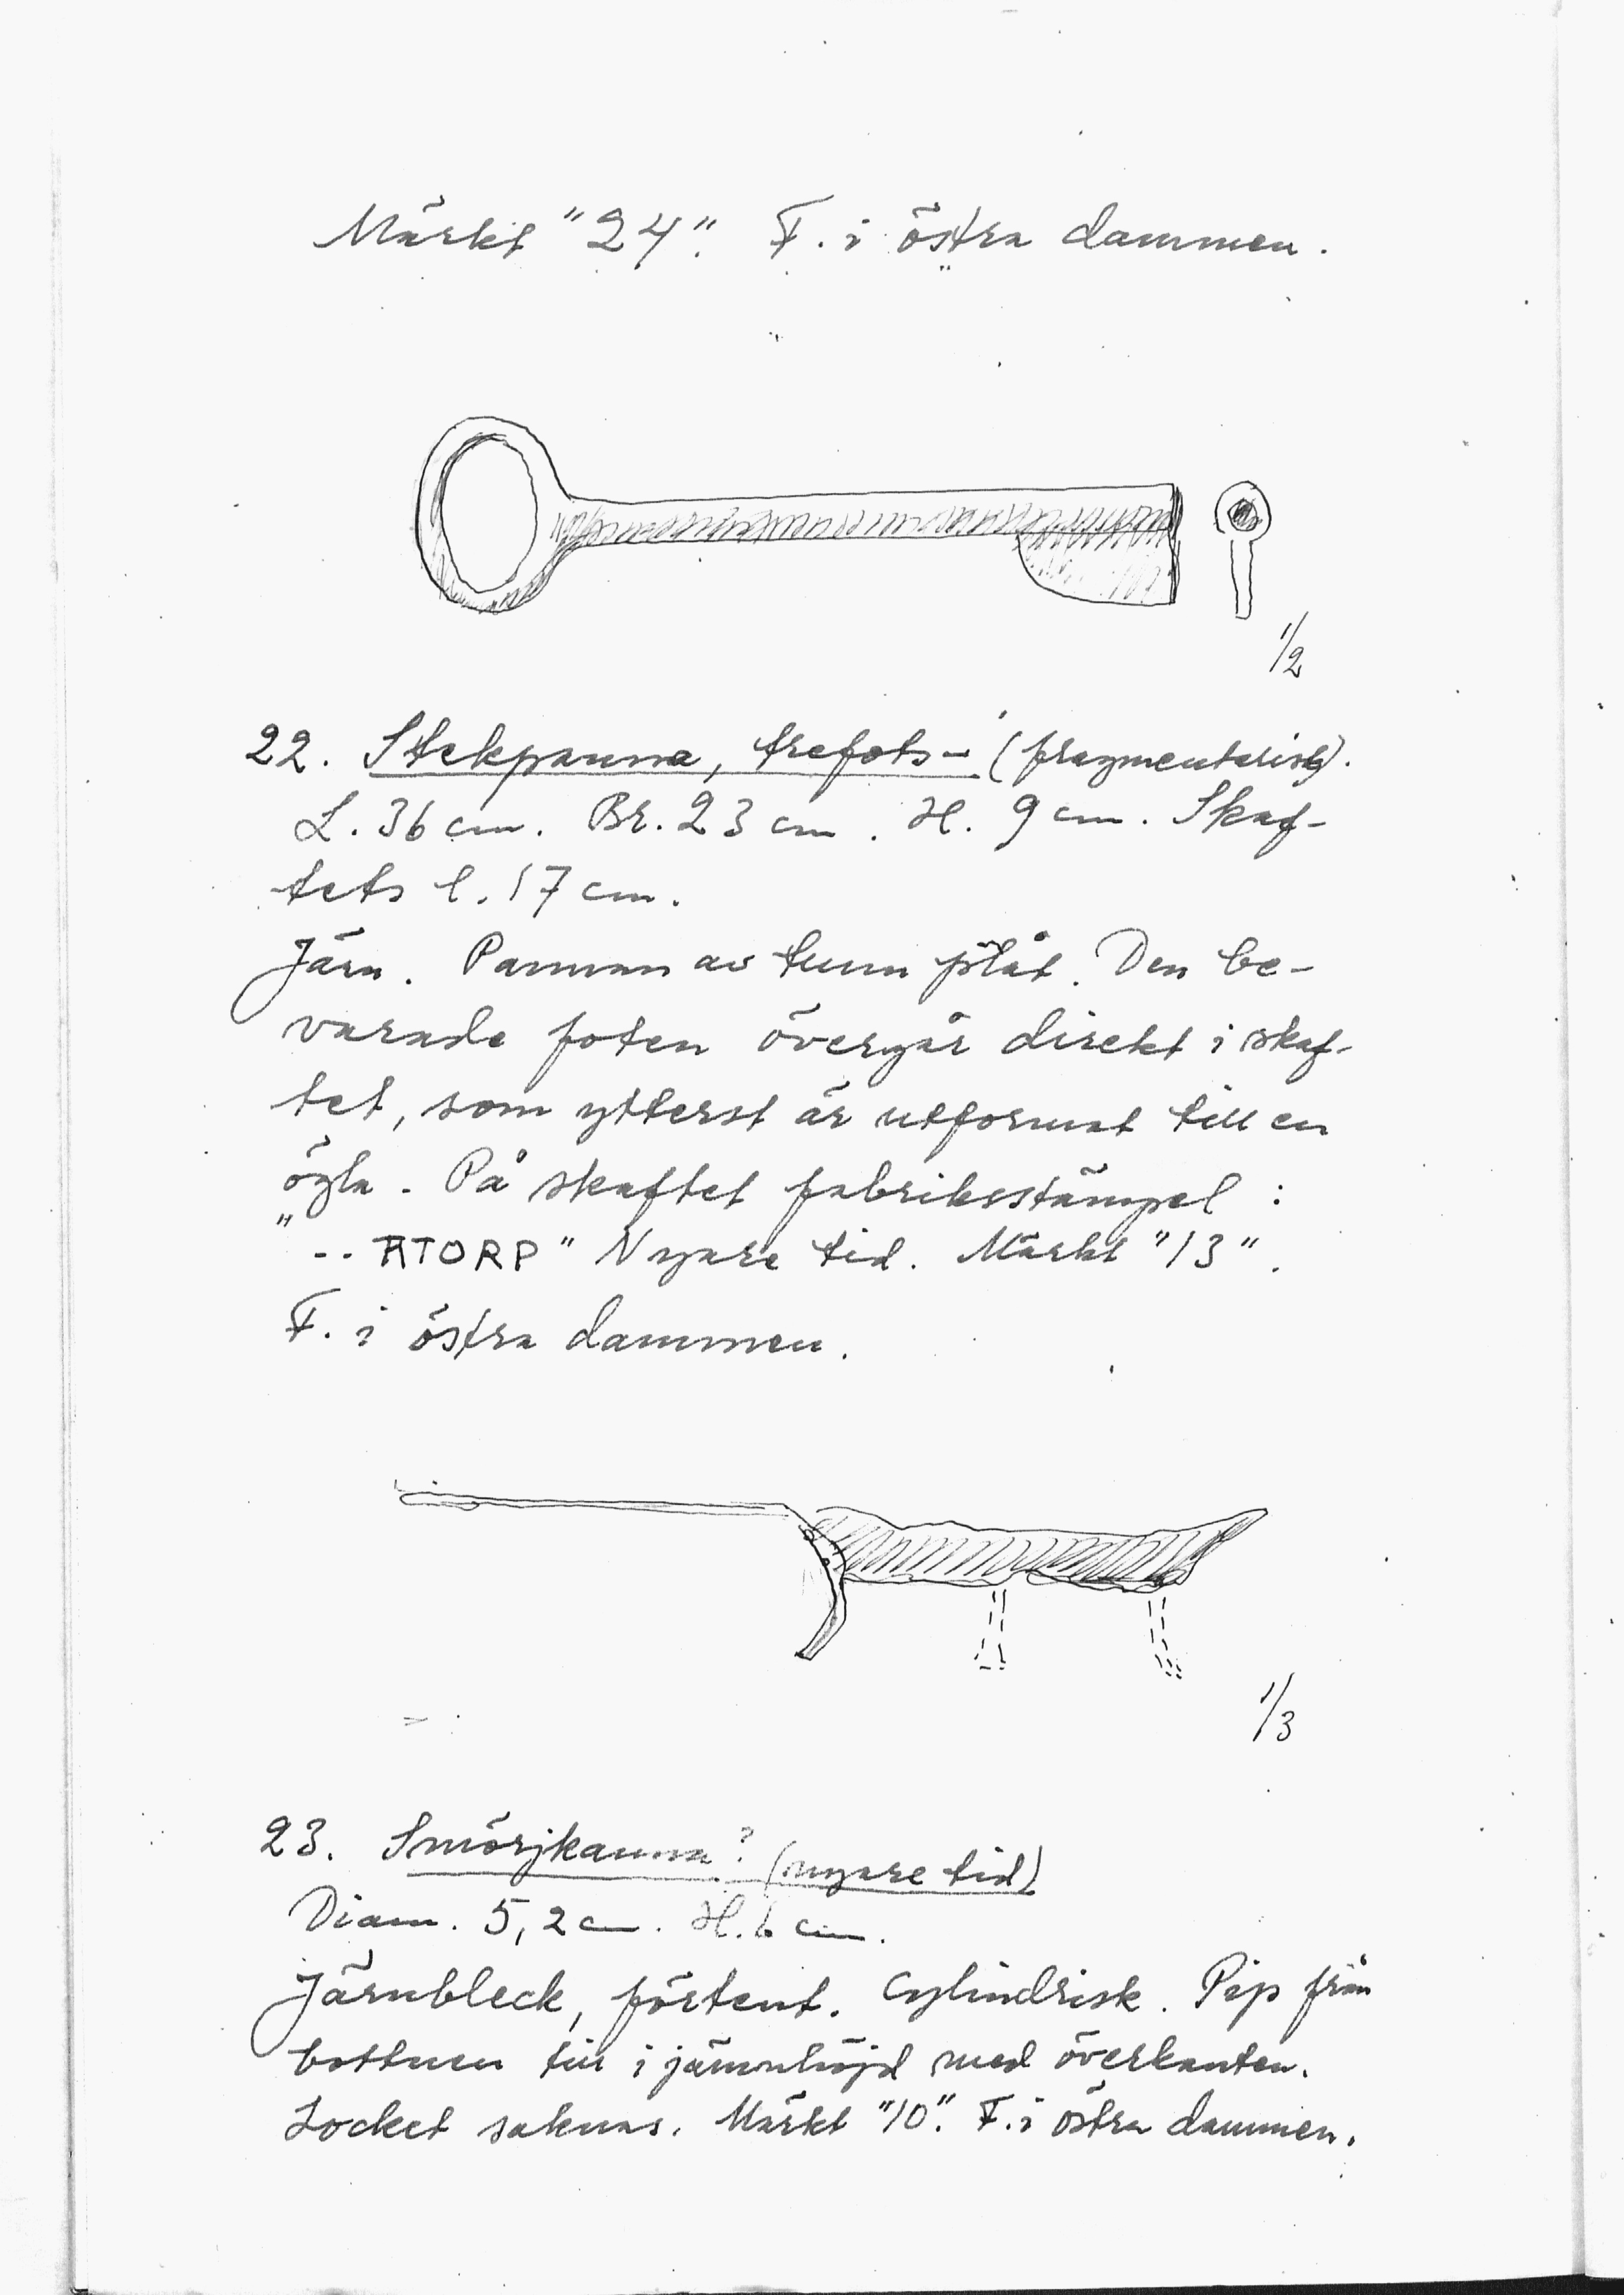 Märkt "24". F. i östra dammen.
1/2
22. Stekpanna, trefots- (fragmentarisk).
L. 36 cm. Br. 23 cm. H. 9 cm. Skaf-
tets l. 17 cm.
Järn. Pannan av tunn plåt. Den be-
varade foten övergår direkt i skaf-
tet, som ytterst är utformat till en
ögla. På skaftet fabriksstämpel :
"-- ATORP" Nyare tid. Märkt "13".
F. i östra dammen.
1/3
23. Smörjkanna? (nyare tid)
Diam. 5,2 cm. H. 6 cm.
Järnbleck, förtent. Cylindrisk. Pip från
bottnen till i jämnhöjd med överkanten.
Locket saknas. Märkt "10". F. i östra dammen.